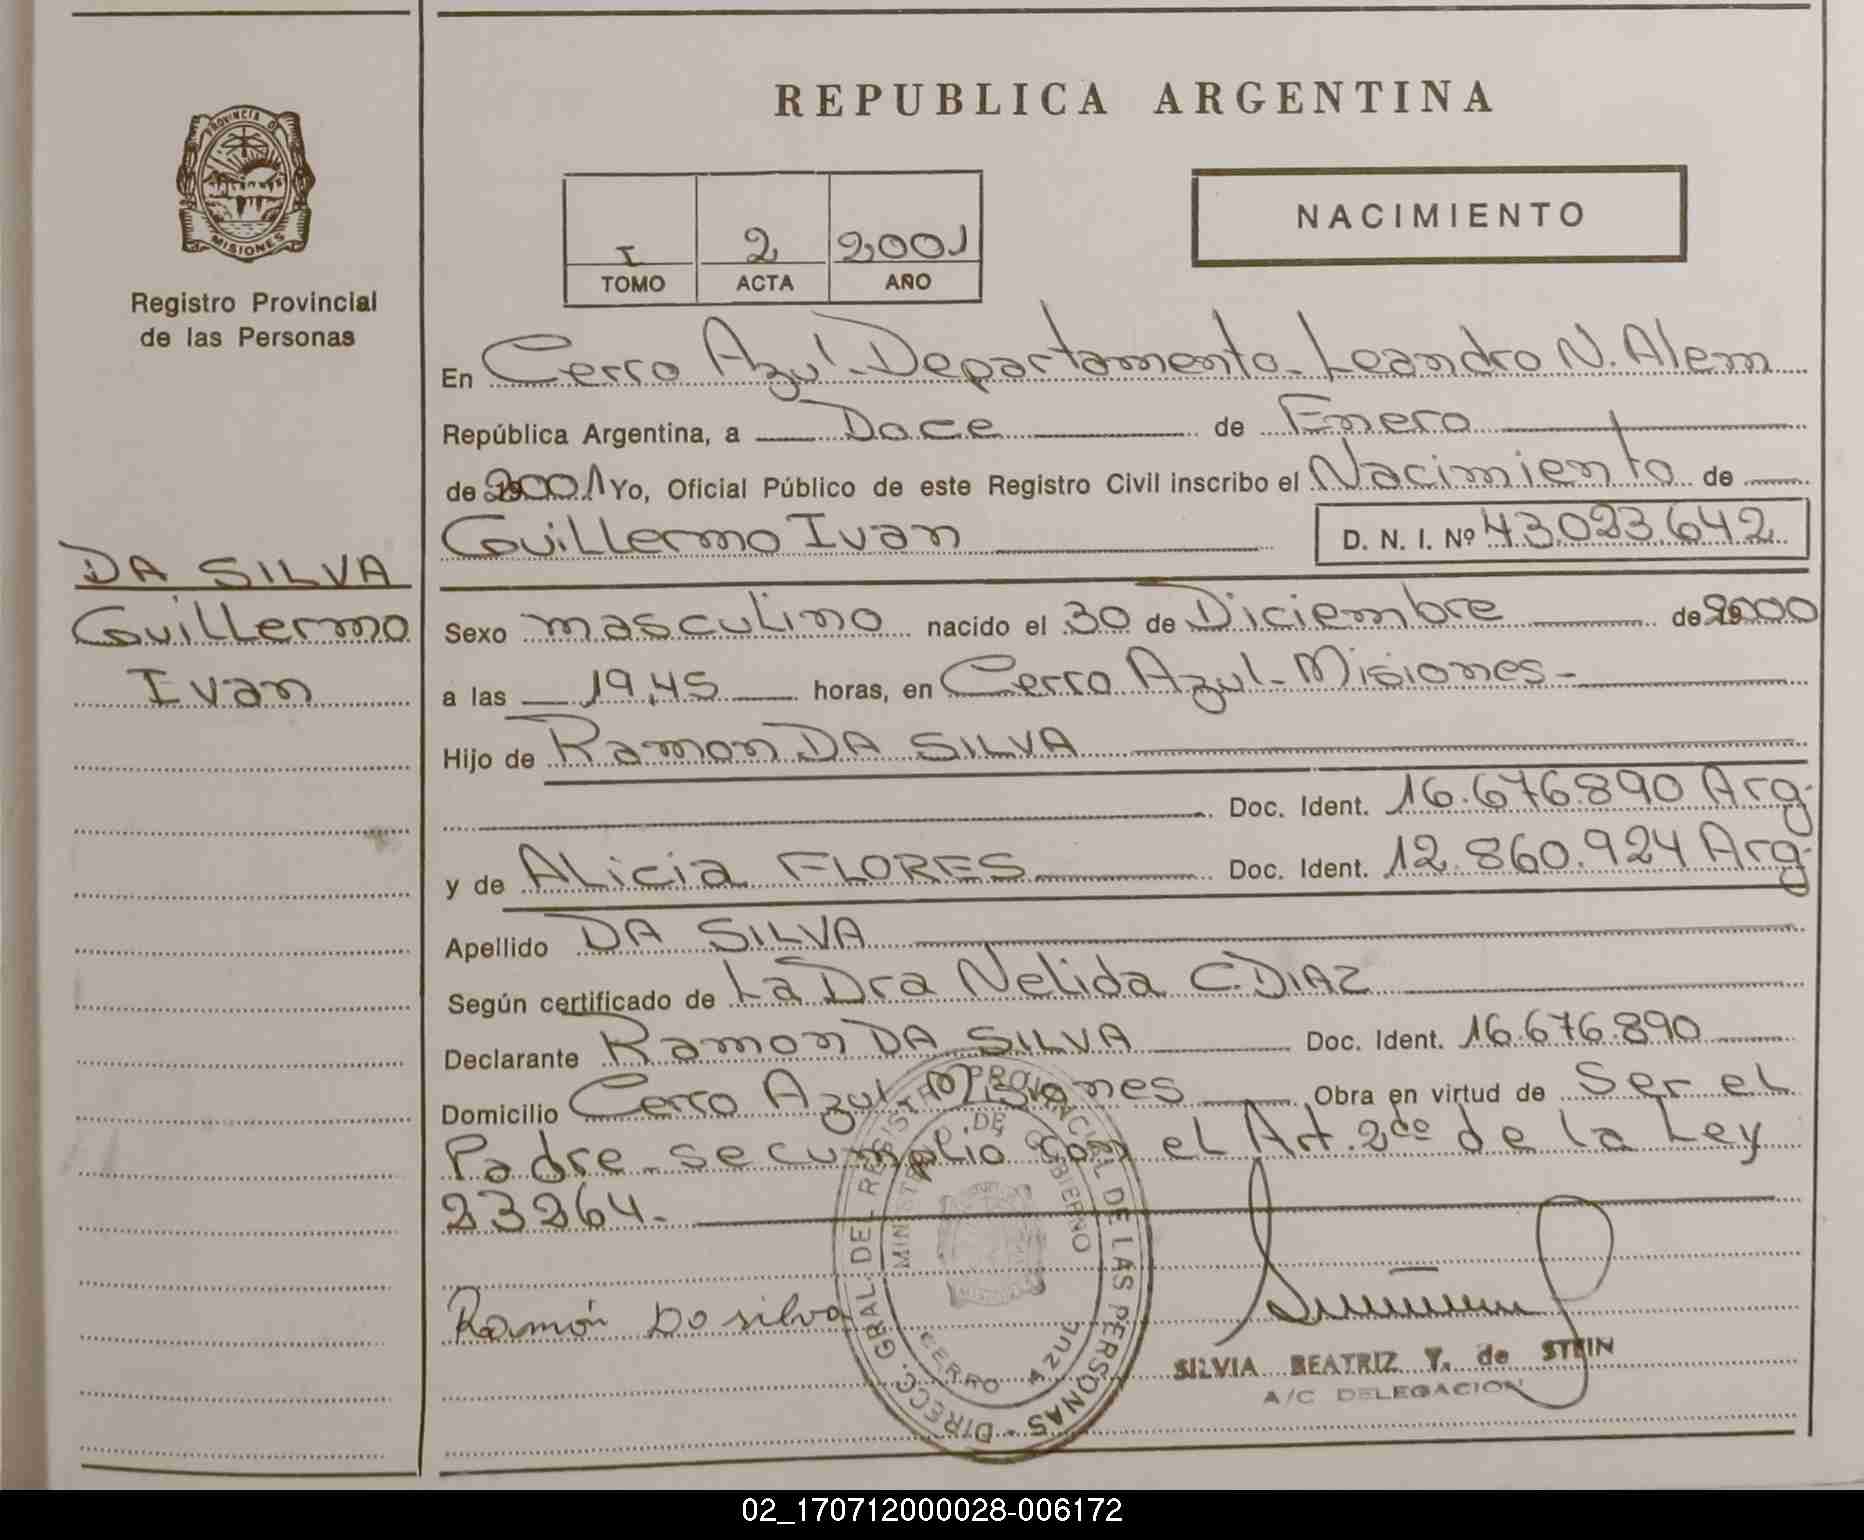 REPUBLICA ARGENTINA
PROVINCIA DE
MISIONES
Registro Provincial
de las Personas
I 2 2001
TOMO ACTA AÑO
NACIMIENTO
En Cerro Azul-Departamento-Leandro N. Alem
República Argentina, a Doce de Enero
de 2001 Yo, Oficial Público de este Registro Civil inscribo el Nacimiento de
Guillermo Ivan D. N. I. Nº 43.023.642
DA SILVA
Guillermo
Ivan
Sexo masculino nacido el 30 de Diciembre de 2000
a las 19,45 horas, en Cerro Azul-Misiones-
Hijo de Ramon DA SILVA
Doc. Ident. 16.676.890 Arg.
y de Alicia FLORES Doc. Ident. 12.860.924 Arg.
Apellido DA SILVA
Según certificado de La Dra Nelida C. DIAZ
Declarante Ramon DA SILVA Doc. Ident. 16.676.890
Domicilio Cerro Azul-Misiones Obra en virtud de Ser el
Padre-se cumplio con el Art. 2do de la Ley
23264.-
Ramón Da silva
DIRECC. GRAL. DEL REGISTRO PROVINCIAL DE LAS PERSONAS
MINISTERIO DE GOBIERNO
CERRO AZUL
SILVIA BEATRIZ Y. de STEIN
A/C DELEGACION
02_170712000028-006172